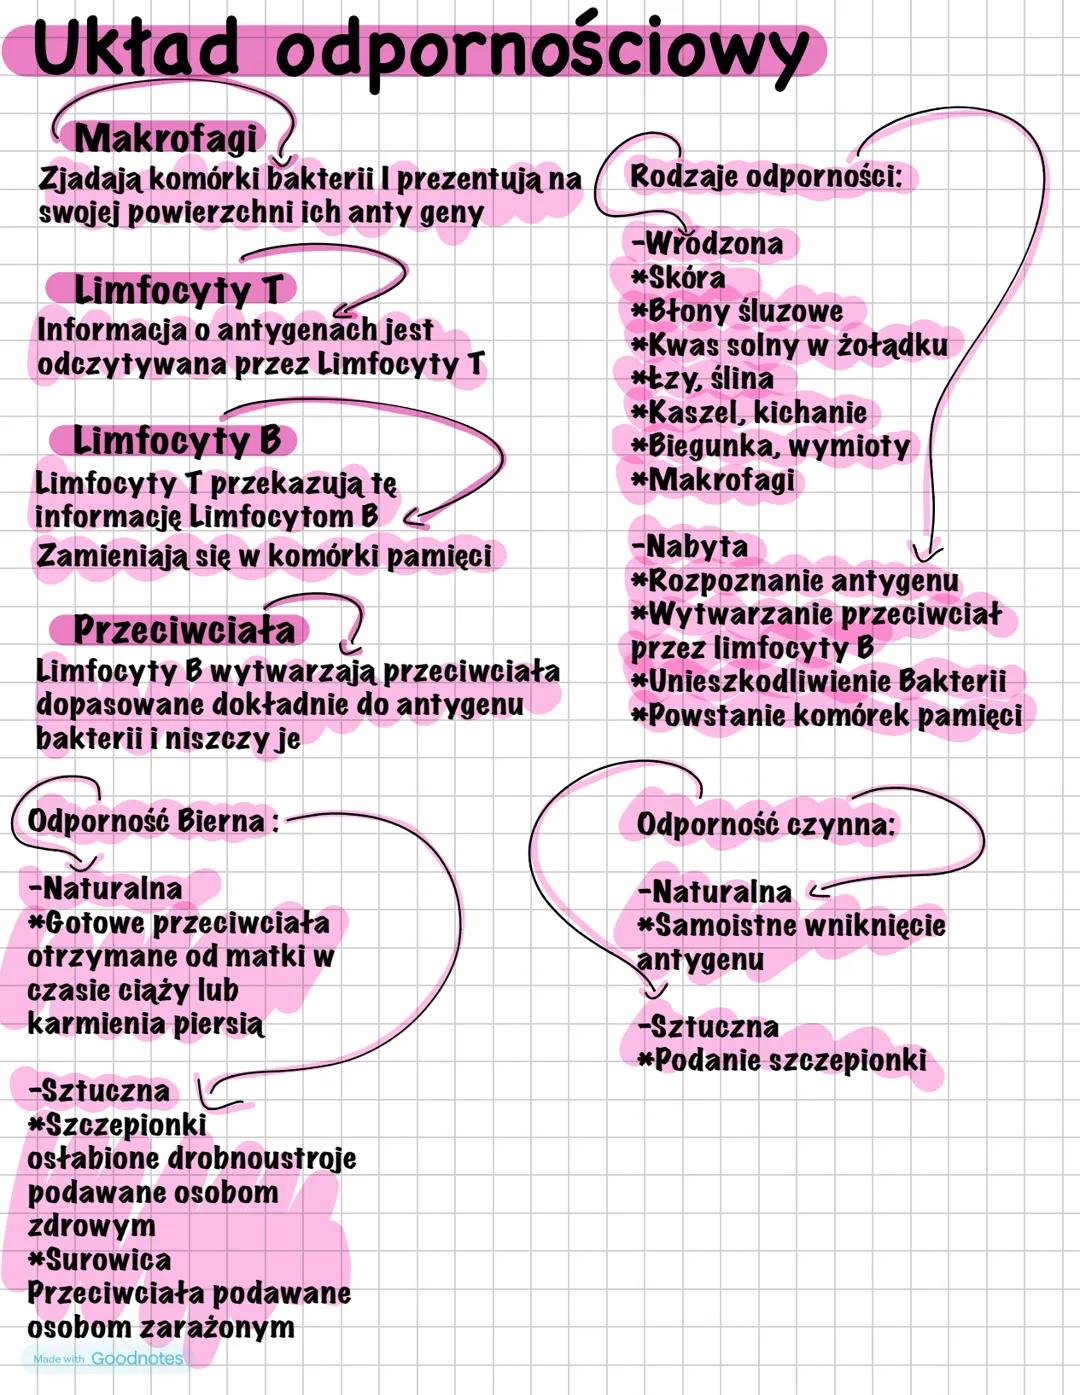 Układ odpornościowy
Makrofagi
Zjadają komórki bakterii I prezentują na
swojej powierzchni ich anty geny
Limfocyty T
Informacja o antygenach jest
odczytywana przez Limfocyty T
Limfocyty B
Limfocyty T przekazują tę
informację Limfocytom B
Zamieniają się w komórki pamięci
Przeciwciała
Limfocyty B wytwarzają przeciwciała
dopasowane dokładnie do antygenu
bakterii i niszczy je
Rodzaje odporności:
-Wrodzona
*Skóra
*Błony śluzowe
*Kwas solny w żołądku
*Łzy, ślina
*Kaszel, kichanie
*Biegunka, wymioty
*Makrofagi
-Nabyta
*Rozpoznanie antygenu
*Wytwarzanie przeciwciał
przez limfocyty B
*Unieszkodliwienie Bakterii
*Powstanie komórek pamięci
Odporność Bierna :
-Naturalna
*Gotowe przeciwciała
otrzymane od matki w
czasie ciąży lub
karmienia piersią
-Sztuczna
*Szczepionki
osłabione drobnoustroje
podawane osobom
zdrowym
*Surowica
Przeciwciała podawane
osobom zarażonym
Odporność czynna:
-Naturalna
*Samoistne wniknięcie
antygenu
-Sztuczna
*Podanie szczepionki
Made with Goodnotes